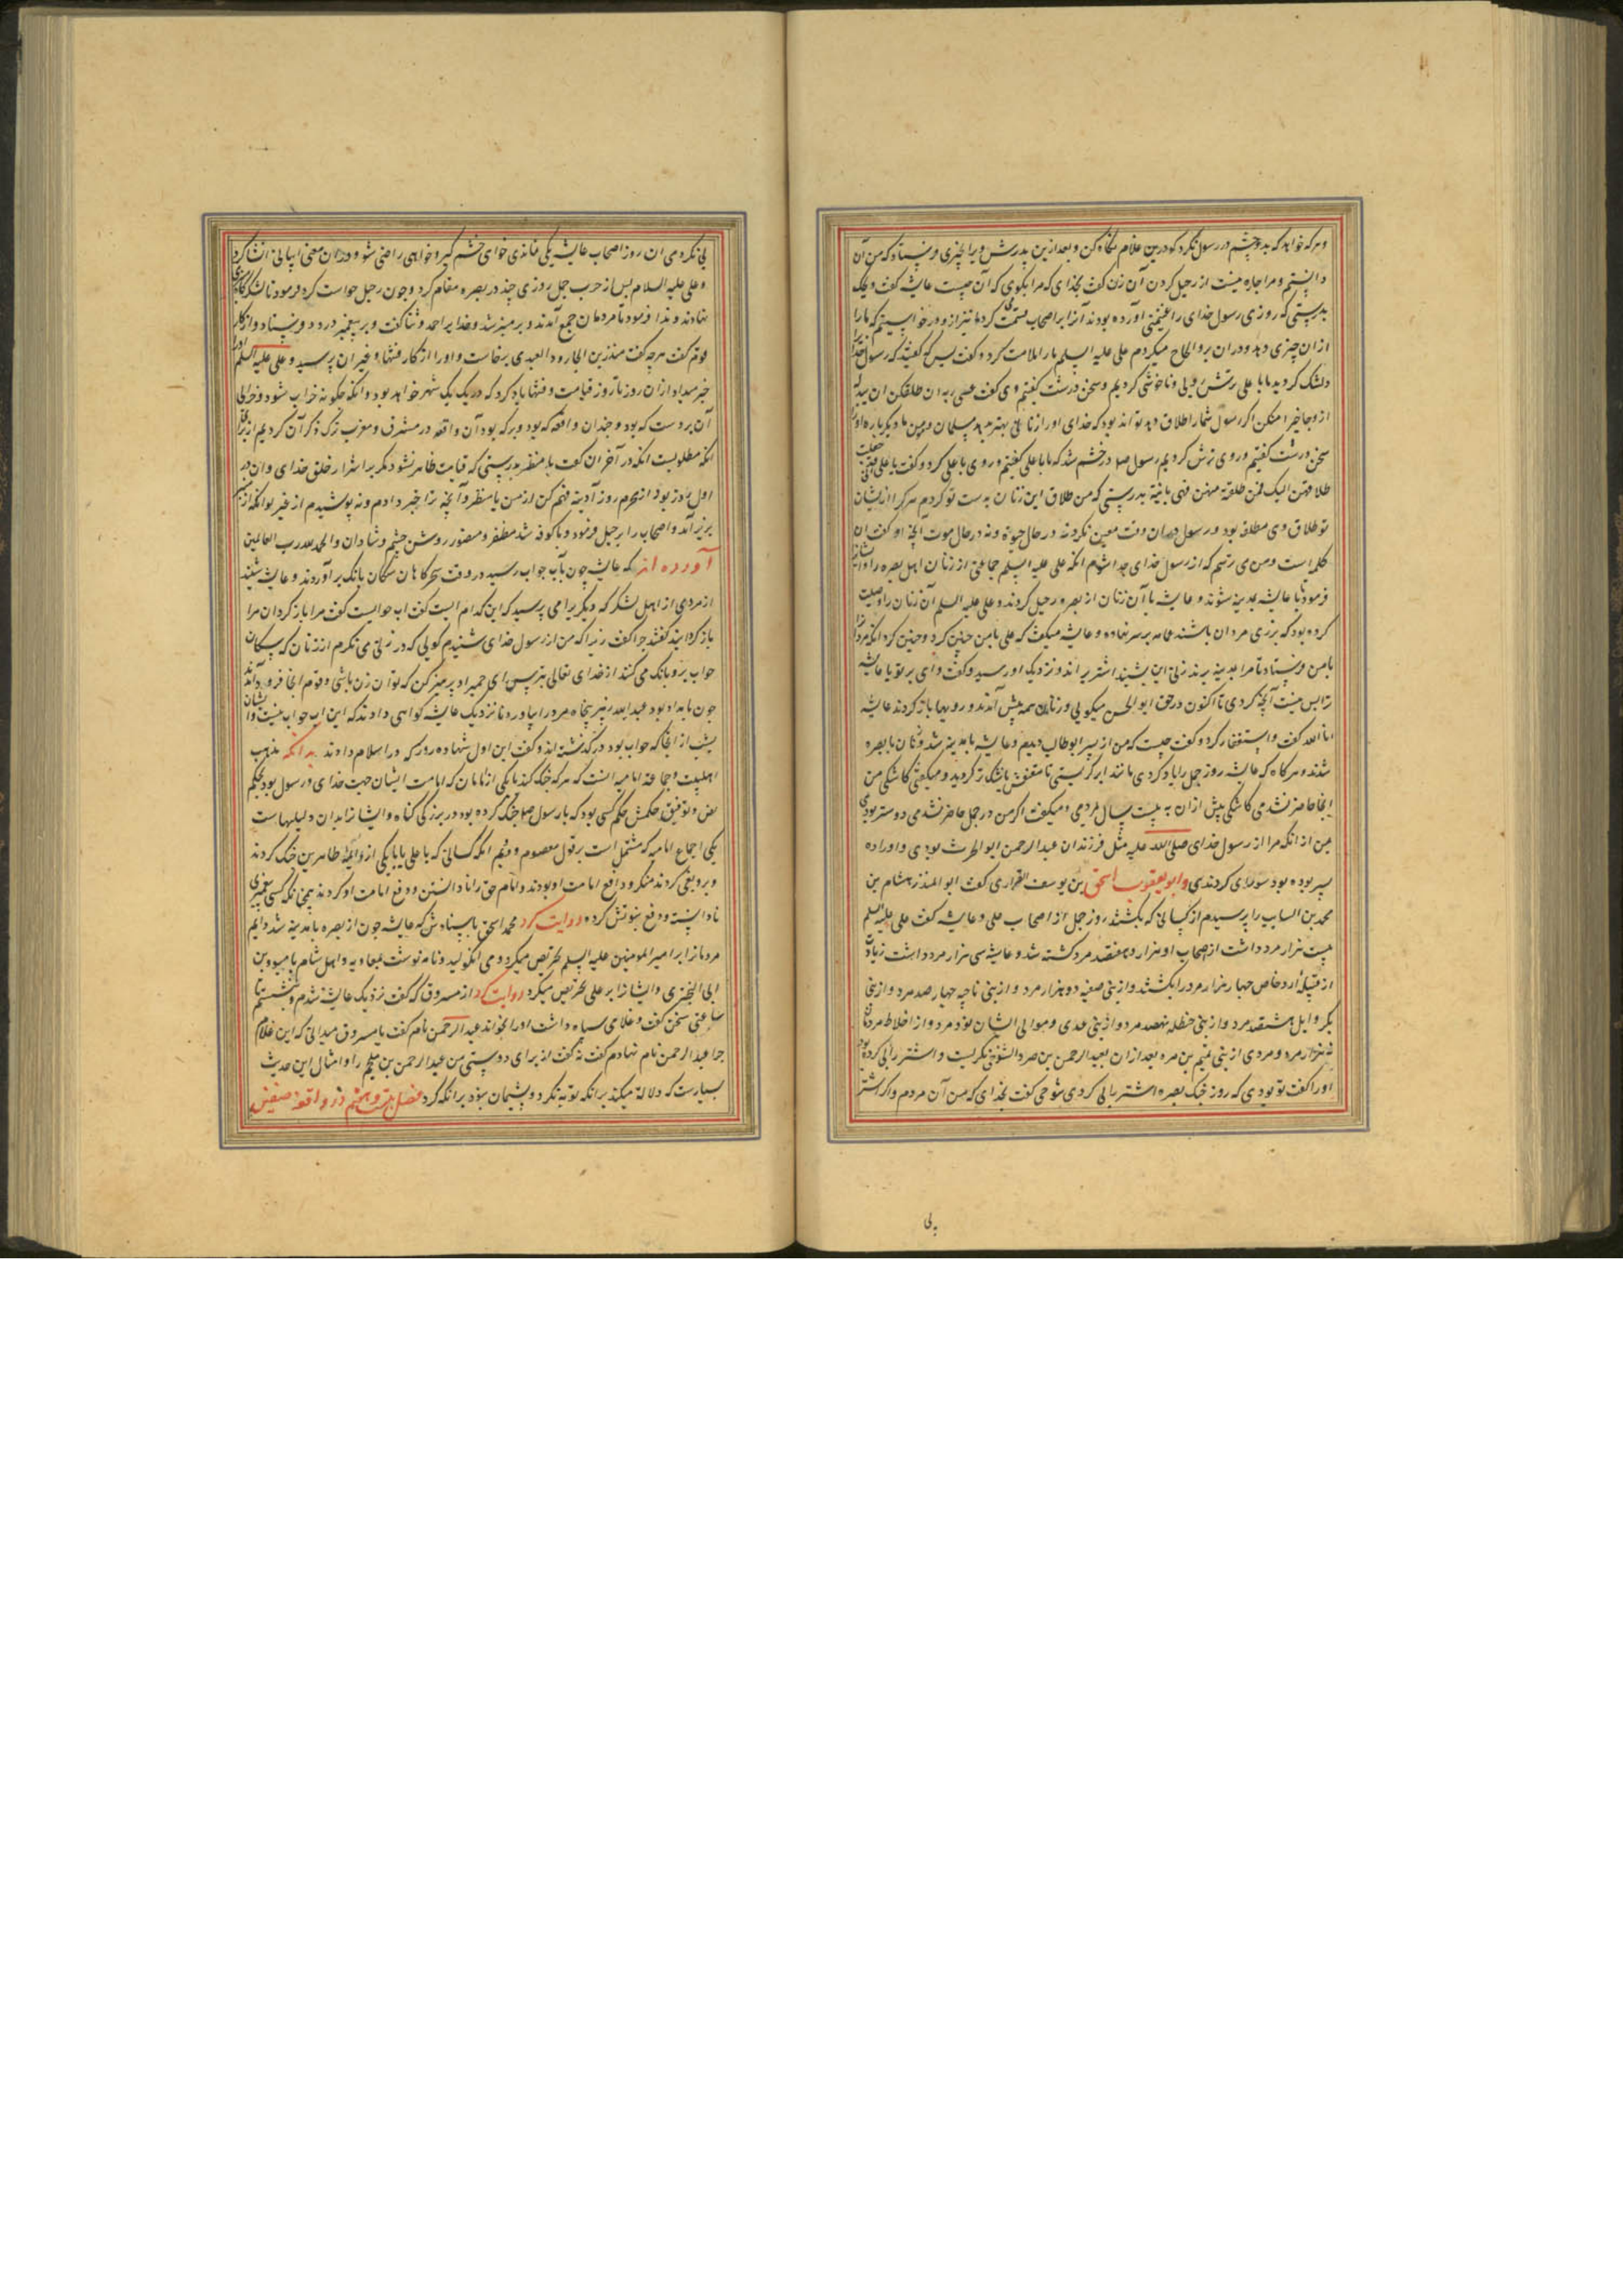 و هر که خواهد که بدو چشم در رسول نگرد کو درین غلام نگاه کن و بعد ازین پدرش ویرا چیزی فرستاد که من آن
دانستم و مرا چاره نیست از رحیل کردن آن زن گفت بخدای که مرا بگوی که آن چیست عایشه گفت ویحک
بدرستی که روزی رسول خدای را غنیمتی آورده بودند آنرا بر اصحاب قسمت کرد ما نیز ازو درخواستیم که ما را
از آن چیزی دهد و در آن برو الحاح میکردم علی علیه السلم ما را ملامت کرد و گفت بس که
دلتنگ کردید ما با علی ترش رویی و ناخوشی کردیم و سخن درشت گفتیم وی گفت عسی ربه ان طلقکن ان یبدله
ازواجا خیرا منکن اگر رسول شما را طلاق دهد تواند بود که خدای او را زنانی بهتر بدهد مسلمان و مومن ما دیگر باره او را
سخن درشت گفتیم و روی ترش کردیم رسول صلعم در خشم شد که ما با علی گفتیم و روی با علی کرد و گفت یا علی
طلاقهن الیک فمن طلقته منهن فهی باینة بدرستی که من طلاق این زنان بدست تو کردم هر کرا ازیشان
تو طلاق دهی مطلقه بود و رسول در آن وقت معین نکرد نه در حال حیوة و نه در حال موت
کله است و من می ترسم که از رسول خدای جدا شوم آنگه علی علیه السلم جماعتی از زنان اهل بصره را
فرمود تا با عایشه بمدینه شوند و عایشه با آن زنان از بصره رحیل کردند و علی علیه السلم آن زنان را وصیت
کرده بود که بزی مردان باشند عمامه بر سر نهاده و عایشه میگفت که علی با من چنین کرد و چنین کرد آنگه
با من فرستاد تا مرا بمدینه برند زنی این بشنید اشتر براند و نزدیک او رسید و گفت وای بر تو یا عایشه
ترا بس نیست آنچه کردی تا اکنون در حق ابو الحسن میگویی و زنان همه پیش آمدند و رویها باز کردند عایشه
انا لله گفت و استغفار کرد و گفت چیست که من از پسر ابوطالب دیدم و عایشه بمدینه شد و زنان با بصره
شدند و هر گاه که عایشه روز جمل را یاد کردی مانند ابر گریستی تا مقنعش باشک تر گردید و میگفتی کاشکی من
اینجا حاضر نشدمی کاشکی پیش از آن به بیست سال بمردمی و میگفت اگر من در جمل حاضر نشدمی دوستر بودی
من از آنکه مرا از رسول خدای صلی الله علیه مثل فرزندان عبد الرحمن ابو الحرث بودی و او را ده
پسر بوده بود کردندی وابو یعقوب اسحق بن یوسف الفزاری گفت ابو المنذر هشام بن
محمد بن السایب را پرسیدم از کسانی که بکشتند روز جمل از اصحاب علی و عایشه گفت علی علیه السلم
بیست هزار مرد داشت از اصحاب او هزار و هفتصد مرد کشته شد و عایشه سی هزار مرد داشت زیادت
از قبیله ازد خاص چهار هزار مرد را بکشتند و از بنی ضبه دو هزار مرد و از بنی ناجیه چهار صد مرد و از بنی
بکر وایل هشتصد مرد و از بنی حنظله نهصد مرد و از بنی عدی و موالی ایشان نود مرد و از اخلاط مردمان
نه هزار مرد و مردی از بنی تمیم بن مره بعد از آن بعبد الرحمن بن صرد التنوخی نگریست و اشتر را پی کرده بود
او را گفت تو بودی که روز جنگ بصره اشتر را پی کردی تنوخی گفت بخدای که من آن مردم و اگر اشتر
پی
پی نکردمی آن روز اصحاب عایشه یکی نماندی خواهی خشم گیر و خواهی راضی شو و در آن معنی ابیاتی انشا کرد
و علی علیه السلام پس از حرب جمل روزی چند در بصره مقام کرد و چون رحیل خواست کرد فرمود تا
نهادند و ندا فرمود تا مردمان جمع آمدند و بر منبر شد و خدا را حمد و ثنا گفت و بر پیغمبر درود فرستاد و از
قوم گفت هر چه گفت منذر بن الجارود العبدی برخاست و او را از کار فتنها و غیر آن پرسید و علی علیه السلم او را
خبر میداد از آن روز تا روز قیامت و فتنها یاد کرد که در یک یک شهر خواهد بود و آنکه چگونه خراب شود و خرابی
آن بر دست که بود و چندان واقعه که بود و بر که بود آن واقعه در مشرق و مغرب ترک ذکر آن کردیم
آنکه مطلوبست آنکه در آخر آن گفت یا منظر بدرستی که قیامت ظاهر نشود مگر بر اشرار خلق خدای و آن در
اول روز بود از محرم روز آدینه فهم کن از من یا منظر و آنچه ترا خبر دادم و نه پوشیدم از غیر تو آنگه از منبر
بزیر آمد و اصحاب را برحیل فرمود و با کوفه شد مظفر و منصور روشن چشم و شادان والحمد لله رب العالمین
آورده اند که عایشه چون بآب حواب رسید در وقت سحرگاهان سگان بانگ بر آوردند و عایشه شنید
از مردی از اهل لشکر که دیگر را می پرسید که این کدام آبست گفت آب حوابست گفت مرا باز گردان مرا
باز گردانید گفتند چرا گفت زیرا که من از رسول خدای شنیدم گویی که در زنی می نگرم از زنان که سگان
حواب برو بانگ می کنند از خدای تعالی بترس ای حمیرا و پرهیز کن که تو آن زن باشی و قوم آنجا فرود آمدند
چون بامداد بود عبد الله زبیر پنجاه مرد را بیاورد تا نزدیک عایشه گواهی دادند که این آب حواب نیست و ایشان
شب از آنجا که حواب بود در گذشته اند و گفت این اول شهاده زور که در اسلام دادند بدانکه مذهب
اهلبیت و جماعة امامیه آنست که هر که جنگ کند با یکی از امامان که امامت ایشان حجت خدای و رسول بود بحکم
نص و توفیق حکمش حکم کسی بود که با رسول صلعم جنگ کرده بود در بزرگی گناه و ایشانرا بدان دلیلهاست
یکی اجماع امامیه که مشتمل است بر قول معصوم دوم آنکه کسانی که با علی یا با یکی از ائمه طاهرین جنگ کردند
و برو بغی کردند منکر و دافع امامت او بودند و امام حق را نا دانستن و دفع امامت او کردن همچنانکه کسی پیغمبری
نادانسته و دفع نبوتش کرده روایت کرد محمد اسحق باسنادش که عایشه چون از بصره با مدینه شد دایم
مردمانرا بر امیر المومنین علیه السلم تحریص میکرد و می انگولید و نامه نوشت بمعاویه و اهل شام با اسود بن
ابی البختری و ایشانرا بر علی تحریص میکرد روایت کرد از مسروق که گفت نزدیک عایشه شدم و بنشستم تا
ساعتی سخن گفت و غلامی سیاه داشت او را بخواند عبد الرحمن نام گفت یا مسروق میدانی که این غلام
چرا عبد الرحمن نام نهادم گفت نه گفت از برای دوستی من عبد الرحمن بن ملجم را و امثال این حدیث
بسیارست که دلالة میکند بر آنکه توبه نکرد و پشیمان نبود بر آنکه کرد فصل بیست و پنجم در واقعه صفین